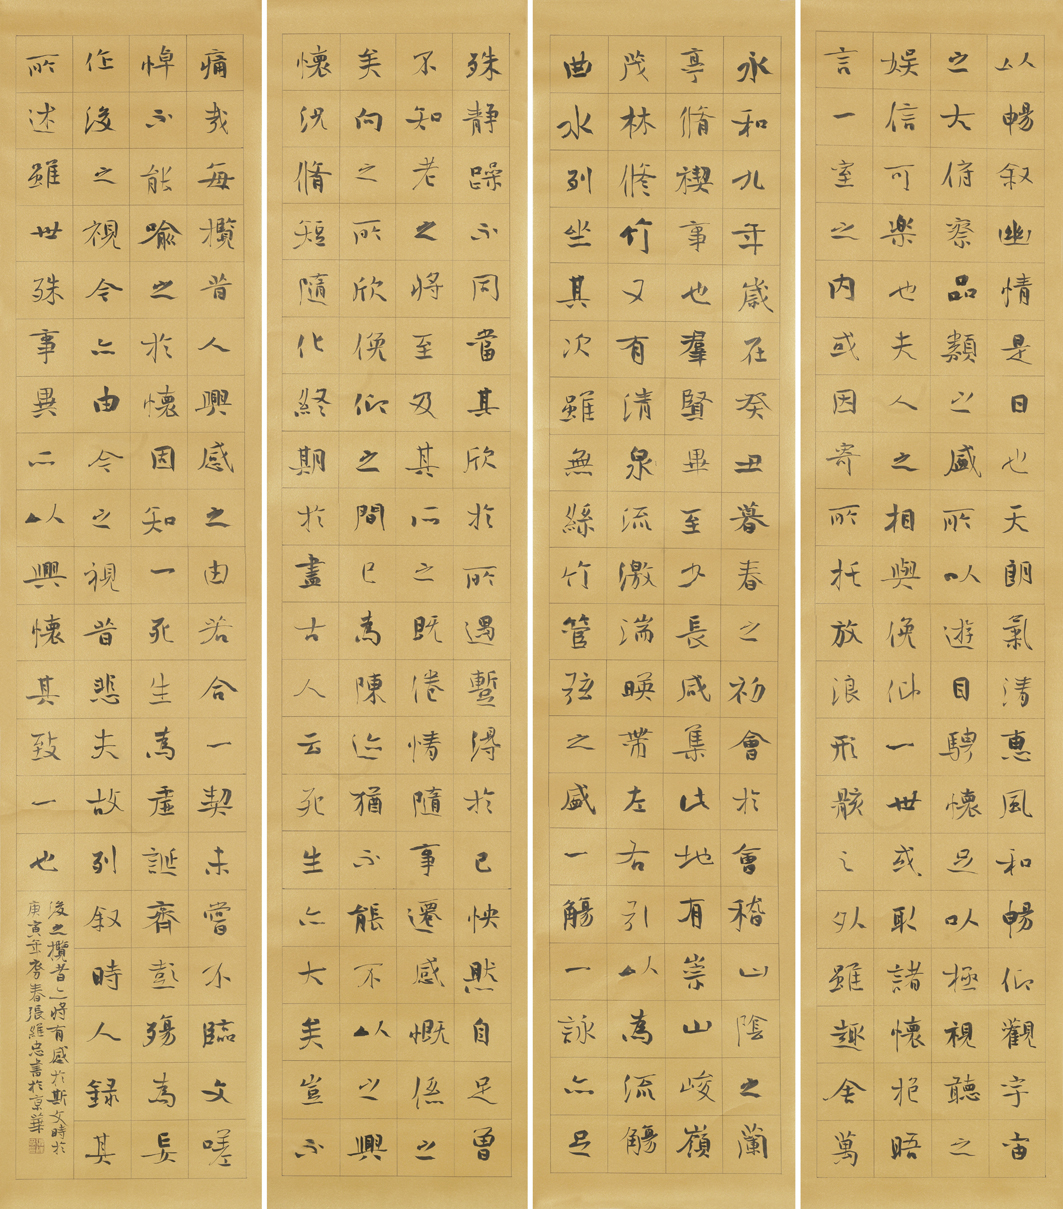 永和九年歲在癸丑暮春之初會於會稽山陰之蘭
亭脩禊事也羣賢畢至少長咸集此地有崇山峻嶺
茂林修竹又有清泉流激湍暎帶左右引以為流觴
曲水列坐其次雖無絲竹管弦之盛一觴一詠亦足
以暢叙幽情是日也天朗氣清惠風和暢仰觀宇宙
之大俯察品類之盛所以遊目騁懷足以極視聽之
娛信可樂也夫人之相與俛仰一世或取諸懷抱晤
言一室之內或因寄所托放浪形骸之外雖趣舍萬
殊靜躁不同當其欣於所遇蹔得於己怏然自足曾
不知老之將至及其所之既惓情隨事遷感慨係之
矣向之所欣俛仰之間已為陳迹猶不能不以之興
懷況脩短隨化終期於盡古人云死生亦大矣豈不
痛哉每攬昔人興感之由若合一契未嘗不臨文嗟
悼不能喻之於懷因知一死生為虛誕齊彭殤為妄
作後之視今亦由今之視昔悲夫故列叙時人錄其
所述雖世殊事異所以興懷其致一也
後之攬者亦將有感於斯文時於
庚寅年春張維忠書於京華